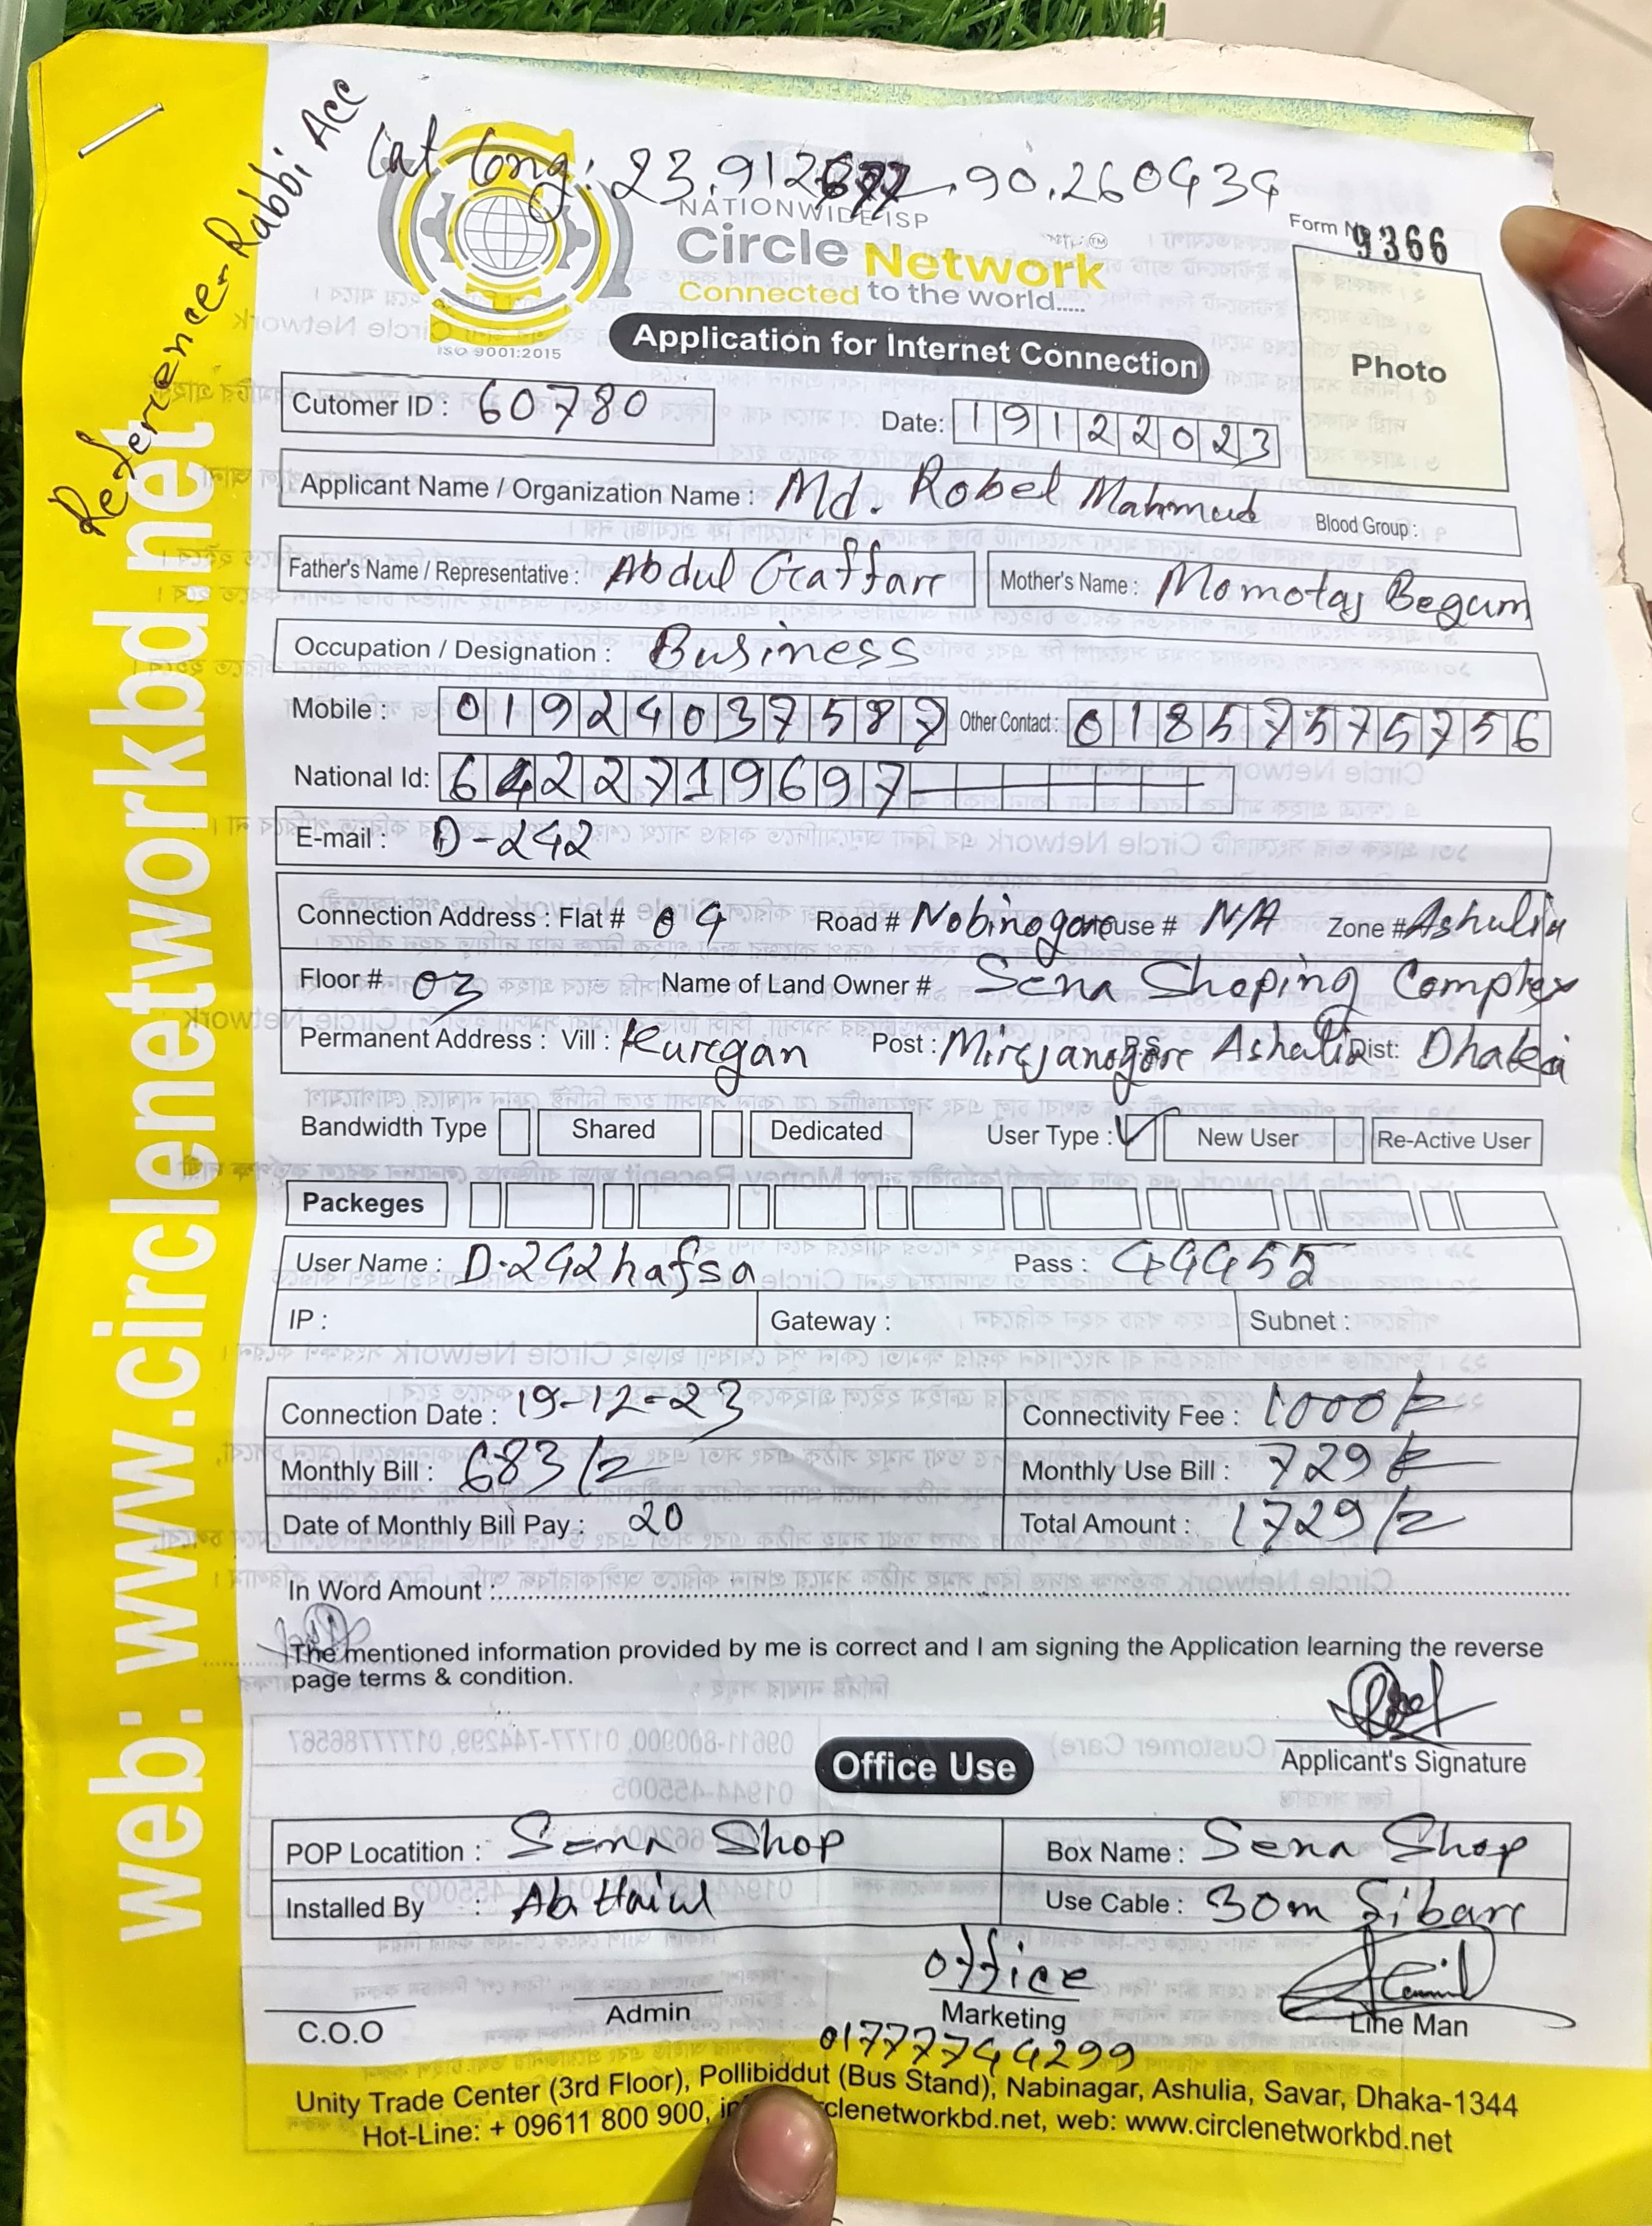 Reference- Rabbi Acc
Lat Long: 23.912677, 90.260434
NATIONWIDE ISP
Circle Network
Connected to the world.....
ISO 9001:2015
Form No 9366
Photo
Application for Internet Connection
Cutomer ID : 60780
Date: 19122023
Applicant Name / Organization Name : Md. Robel Mahmud Blood Group :
Father's Name / Representative : Abdul Gaffar Mother's Name : Momotaj Begum
Occupation / Designation : Business
Mobile : 01924037587 Other Contact : 01857575756
National Id: 6422719697
E-mail : D-242
Connection Address : Flat # 04 Road # Nobinogore House # N/A Zone # Ashulia
Floor # 03 Name of Land Owner # Sena Shoping Complex
Permanent Address : Vill : Kurgan Post : Mirjanogore P.S Ashulia Dist: Dhaka
Bandwidth Type Shared Dedicated User Type : New User Re-Active User
Packeges
User Name : D.242hafsa Pass : 44455
IP : Gateway : Subnet :
Connection Date : 19-12-23 Connectivity Fee : 1000/=
Monthly Bill : 683/= Monthly Use Bill : 729/=
Date of Monthly Bill Pay : 20 Total Amount : 1729/=
In Word Amount :
The mentioned information provided by me is correct and I am signing the Application learning the reverse
page terms & condition.
Applicant's Signature
Office Use
POP Locatition : Sena Shop Box Name : Sena Shop
Installed By : Use Cable : 30m Fibar
office
C.O.O Admin Marketing Line Man
01777744299
Unity Trade Center (3rd Floor), Pollibiddut (Bus Stand), Nabinagar, Ashulia, Savar, Dhaka-1344
Hot-Line: + 09611 800 900, clenetworkbd.net, web: www.circlenetworkbd.net
web: www.circlenetworkbd.net